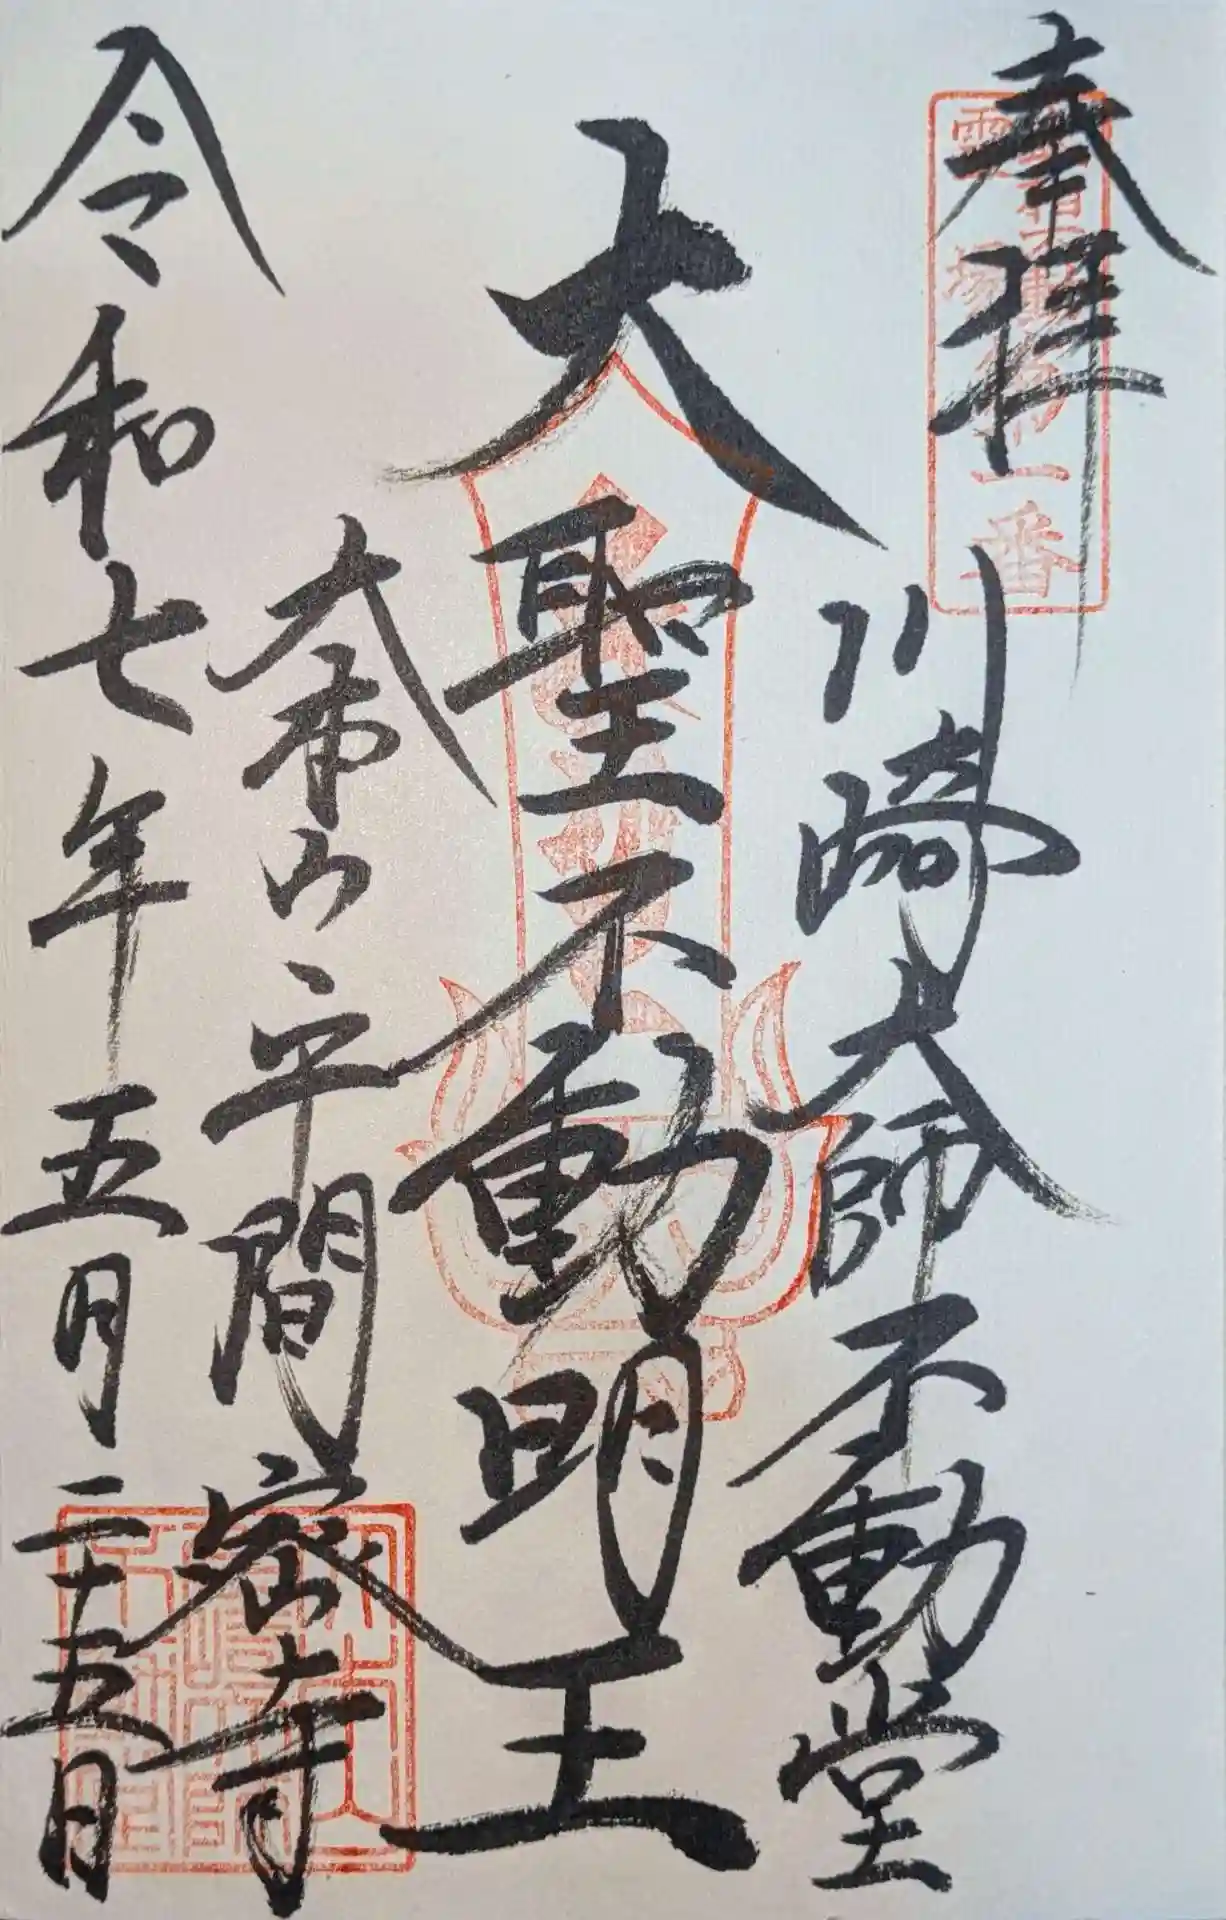 奉拝
川崎大師不動堂
大聖不動明王
金剛山平間密寺
令和七年五月二十五日
第一番
霊場